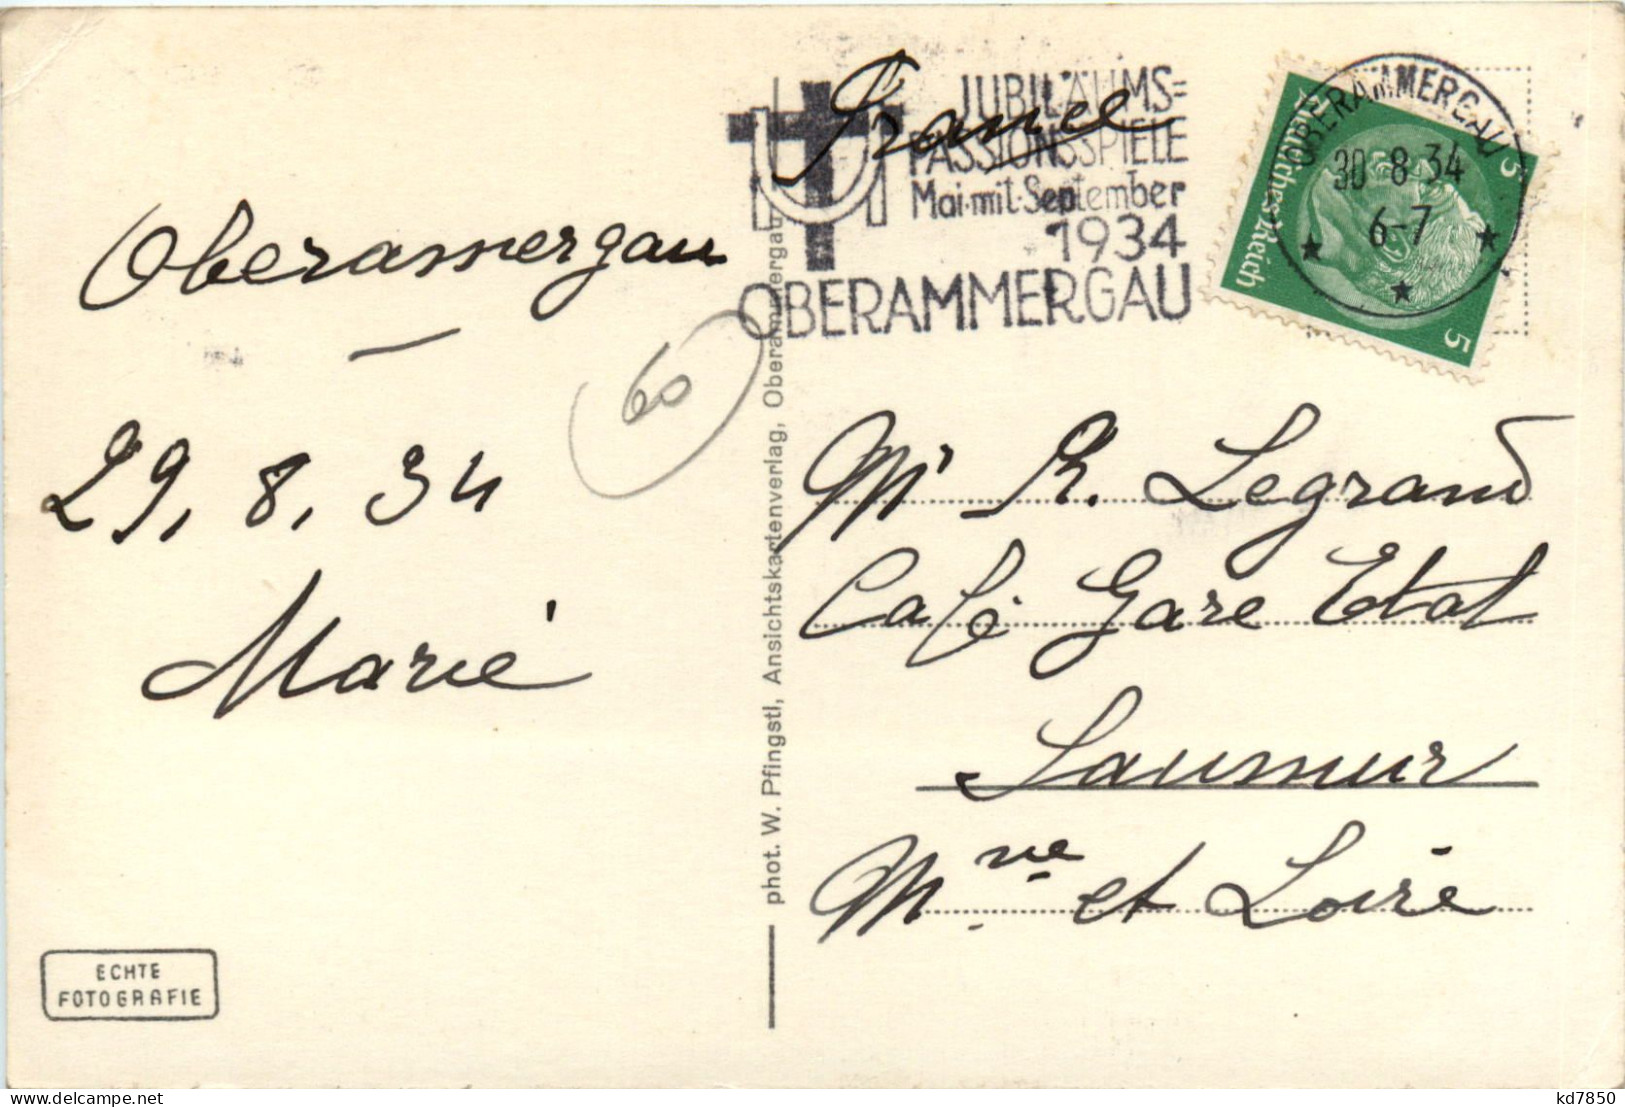 Oberammergau
29.8.34
Marie
60
ECHTE
FOTOGRAFIE
phot. W. Pfingstl, Ansichtskartenverlag, Oberammergau
France
JUBILÄUMS=
PASSIONSSPIELE
Mai mit September
1934
OBERAMMERGAU
OBERAMMERGAU
30-8-34
6-7
Deutsches Reich
5
5
Mr R. Legrand
Café Gare Etat
Saumur
Mne et Loire
kd7850